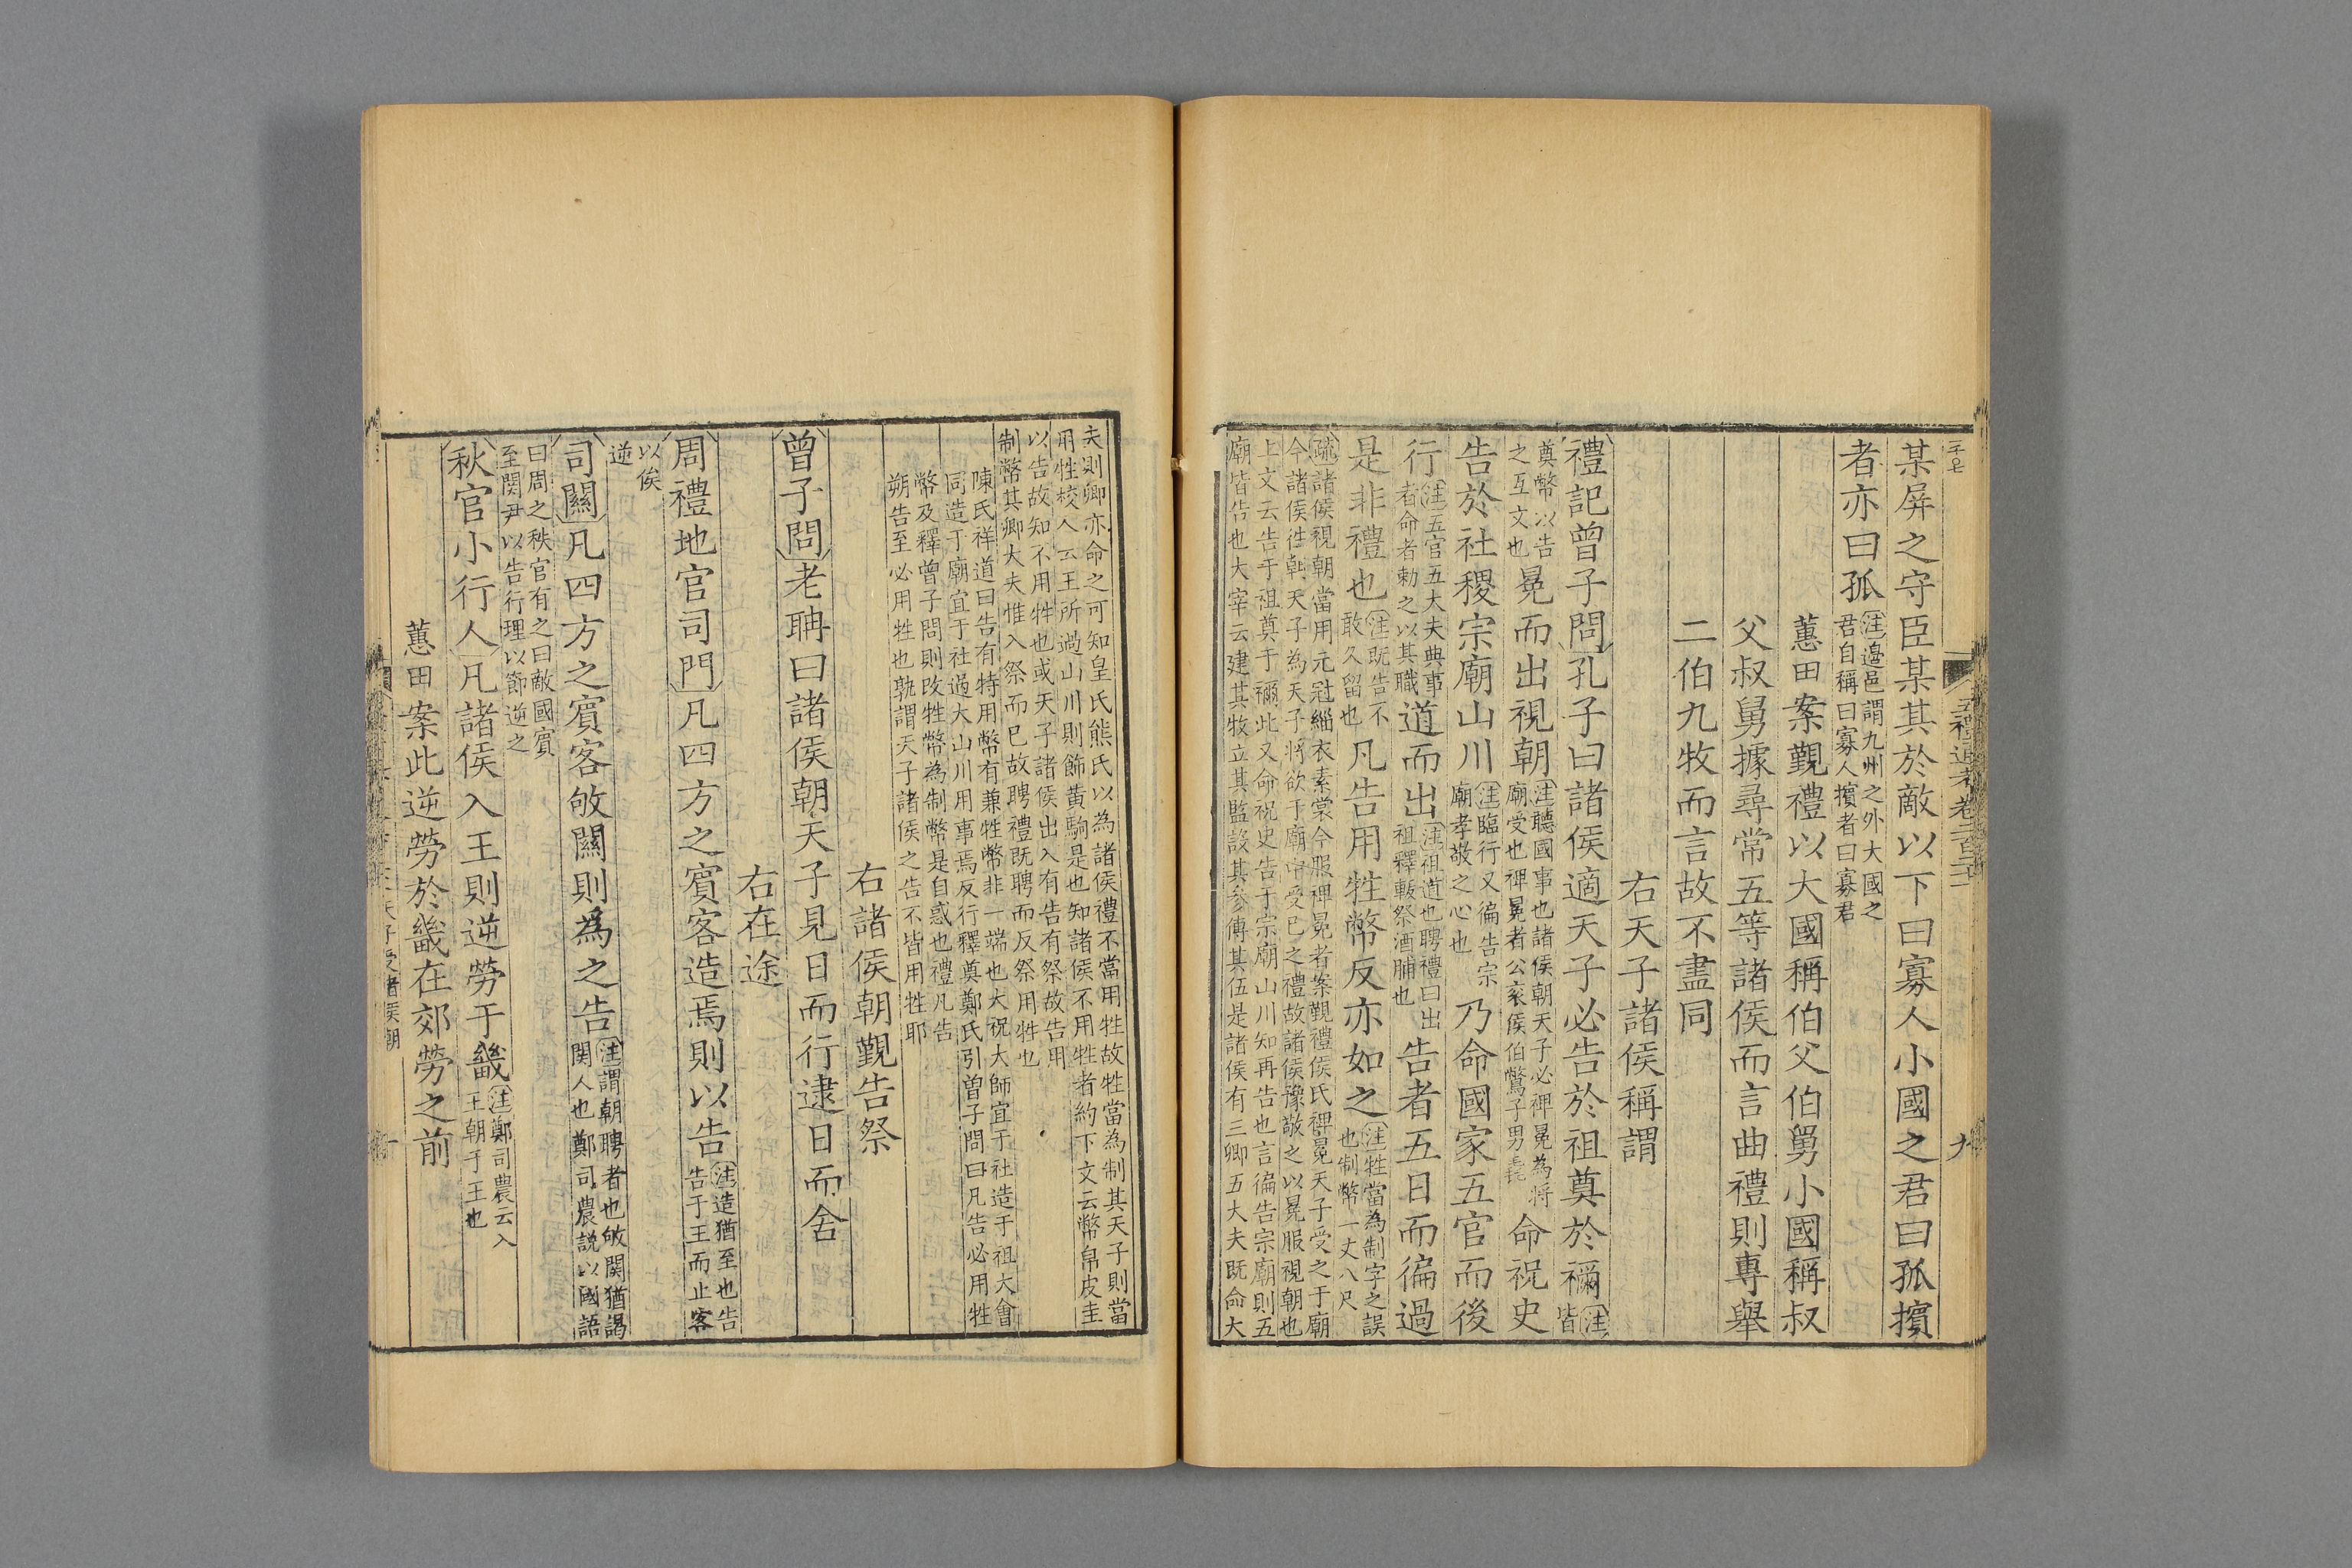 某屏之守臣某其於敵以下曰寡人小國之君曰孤擯
者亦曰孤注邊邑謂九州之外大國之
君自稱曰寡人擯者曰寡君
蕙田案覲禮以大國稱伯父伯舅小國稱叔
父叔舅據尋常五等諸侯而言曲禮則專舉
二伯九牧而言故不盡同
右天子諸侯稱謂
禮記曾子問孔子曰諸侯適天子必告於祖奠於禰注
皆
奠幣以告
之互文也
冕而出視朝注聽國事也諸侯朝天子必裨冕為將
廟受也裨冕者公衮侯伯鷩子男毳
命祝史
告於社稷宗廟山川注臨行又徧告宗
廟孝敬之心也
乃命國家五官而後
行注五官五大夫典事
者命者勅之以其職
道而出注祖道也聘禮曰出
祖釋軷祭酒脯也
告者五日而徧過
是非禮也注既告不
敢久留也
凡告用牲幣反亦如之注牲當為制字之誤
也制幣一丈八尺
疏諸侯視朝當用元冠緇衣素裳今服裨冕者案覲禮侯氏裨冕天子受之于廟
今諸侯往朝天子為天子將欲于廟中受已之禮故諸侯豫敬之以冕服視朝也
上文云告于祖奠于禰此又命祝史告于宗廟山川知再告也言徧告宗廟則五
廟皆告也大宰云建其牧立其監設其參傅其伍是諸侯有三卿五大夫既命大
夫則卿亦命之可知皇氏熊氏以為諸侯禮不當用牲故牲當為制其天子則當
用牲校人云王所過山川則飾黃駒是也知諸侯不用牲者約下文云幣帛皮圭
以告故知不用牲也或天子諸侯出入有告有祭故告用
制幣其卿大夫惟入祭而已故聘禮既聘而反祭用牲也
陳氏祥道曰告有特用幣有兼牲幣非一端也大祝大師宜于社造于祖大會
同造于廟宜于社過大山川用事焉反行釋奠鄭氏引曾子問曰凡告必用牲
幣及釋曾子問則改牲幣為制幣是自惑也禮凡告
朔告至必用牲也孰謂天子諸侯之告不皆用牲耶
右諸侯朝覲告祭
曾子問老聃曰諸侯朝天子見日而行逮日而舍
右在途
周禮地官司門凡四方之賓客造焉則以告注造猶至也告
告于王而止客
以俟
逆
司關凡四方之賓客敂關則為之告注謂朝聘者也敂関猶謁
関人也鄭司農説以國語
曰周之秩官有之曰敵國賓
至関尹以告行理以節逆之
秋官小行人凡諸侯入王則逆勞于畿注鄭司農云入
王朝于王也
蕙田案此逆勞於畿在郊勞之前